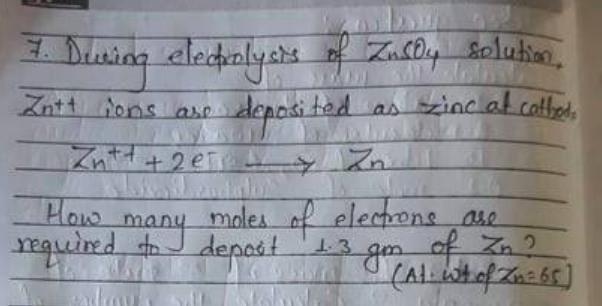 7. During electrolysis of ZnSO4 solution,
Zn++ ions are deposited as zinc at cathode
Zn++ + 2e- → Zn
How many moles of electrons are
required to deposit 1.3 gm of Zn?
(At. wt of Zn = 65)